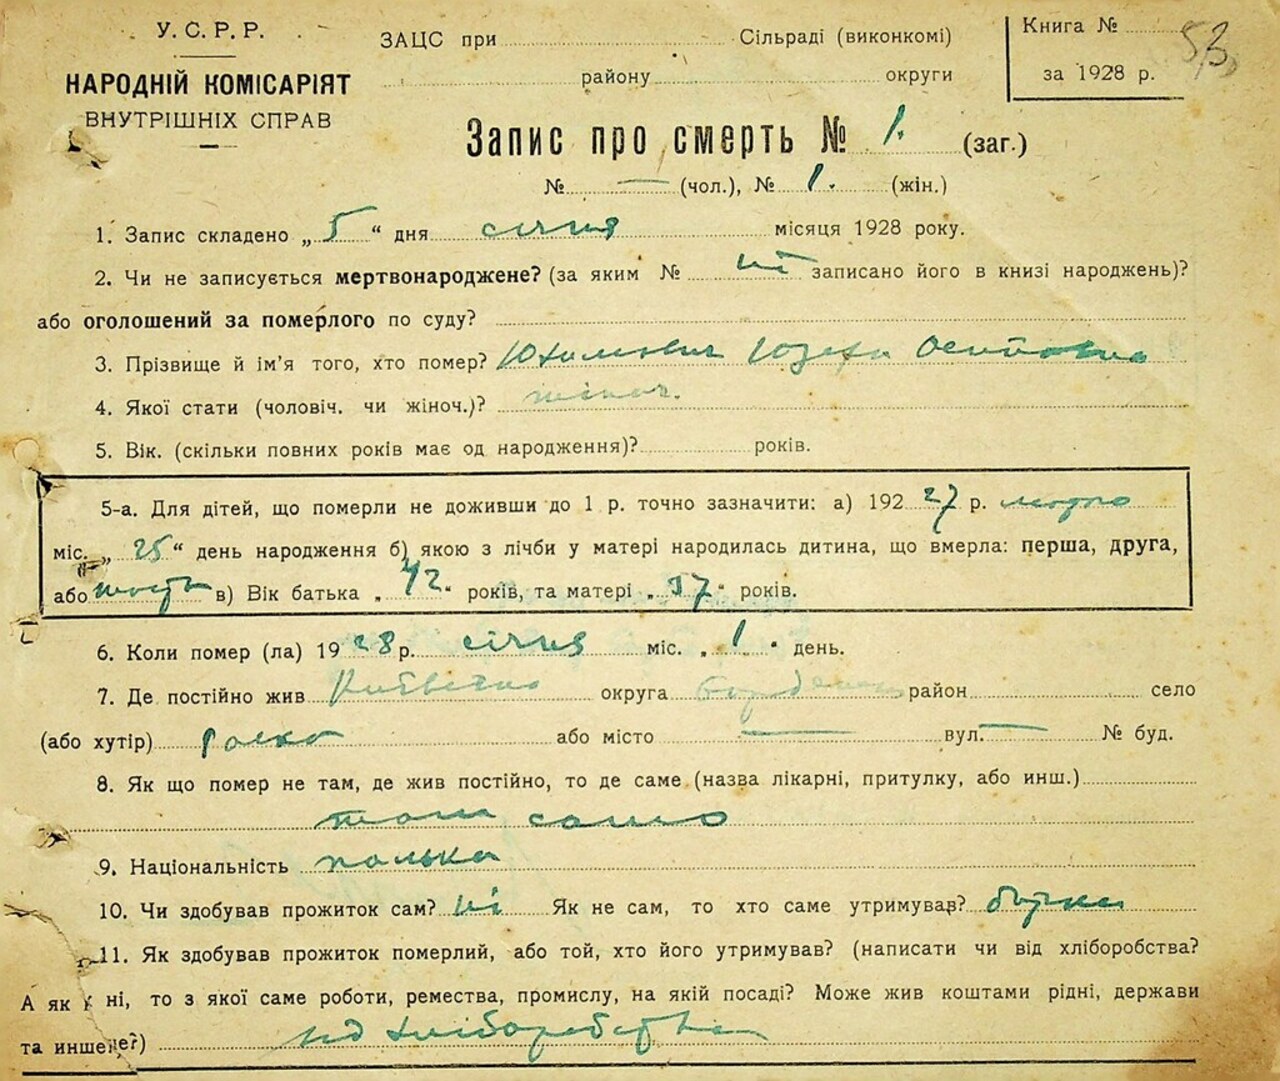 У. С. Р. Р.
НАРОДНІЙ КОМІСАРІЯТ
ВНУТРІШНІХ СПРАВ
ЗАЦС при Сільраді (виконкомі)
району округи
Книга № 53
за 1928 р.
Запис про смерть № 1. (заг.)
№ — (чол.), № 1. (жін.)
1. Запис складено „5“ дня січня місяця 1928 року.
2. Чи не записується мертвонароджене? (за яким № ні записано його в книзі народжень)?
або оголошений за померлого по суду?
3. Прізвище й ім'я того, хто помер? Юхимович Юзефа Осиповна
4. Якої стати (чоловіч. чи жіноч.)? жіноч.
5. Вік. (скільки повних років має од народження)? років.
5-а. Для дітей, що померли не доживши до 1 р. точно зазначити: а) 192 27 р. лютого
міс. „25“ день народження б) якою з лічби у матері народилась дитина, що вмерла: перша, друга,
або в) Вік батька „42“ років, та матері „37“ років.
6. Коли помер (ла) 1928 р. січня міс. „1“ день.
7. Де постійно жив округа район село
(або хутір) або місто — вул. — № буд.
8. Як що помер не там, де жив постійно, то де саме (назва лікарні, притулку, або инш.)
там само
9. Національність полька
10. Чи здобував прожиток сам? ні Як не сам, то хто саме утримував? батьки
11. Як здобував прожиток померлий, або той, хто його утримував? (написати чи від хліборобства?
А як ні, то з якої саме роботи, ремества, промислу, на якій посаді? Може жив коштами рідні, держави
та иншеце?) від хліборобства